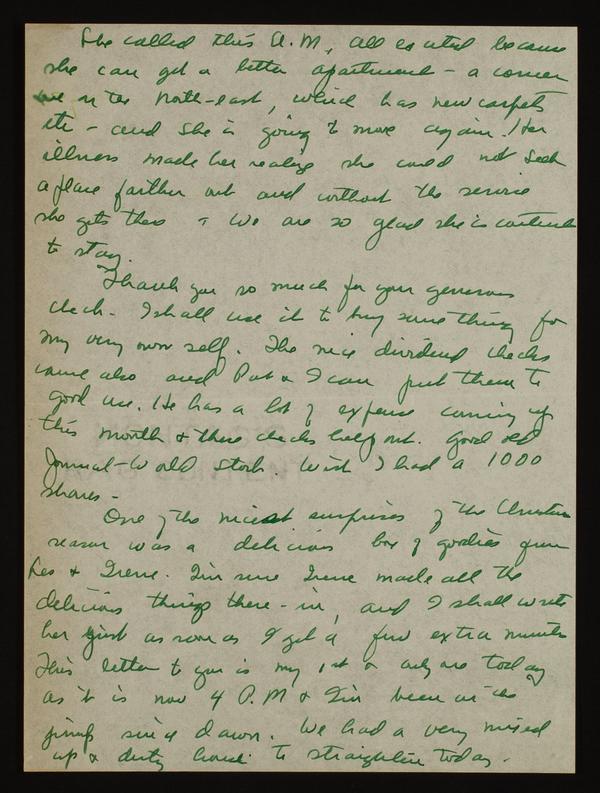 She called this A.M, all excited because
she can get a better apartment - a corner
one in the north-east, which has new carpets
etc - and she is going to move again. Her
illness made her realize she could not seek
a place farther out and without the service
she gets there - We are so glad she is content
to stay.
Thank you so much for your generous
check. I shall use it to buy something for
my very own self. The nice dividend checks
came also and Pat & I can put them to
good use. He has a lot of expense coming up
this month & these checks help out. Good old
Journal-World stock. Wish I had a 1000
shares -
One of the nicest surprises of the Christmas
season was a delicious box of goodies from
Les & Irene. I'm sure Irene made all the
delicious things there-in, and I shall write
her just as soon as I get a few extra minutes
This letter to you is my 1st & only one today
as it is now 4 P.M & I'm been on the
jump since dawn. We had a very mixed
up & dirty house to straighten today.